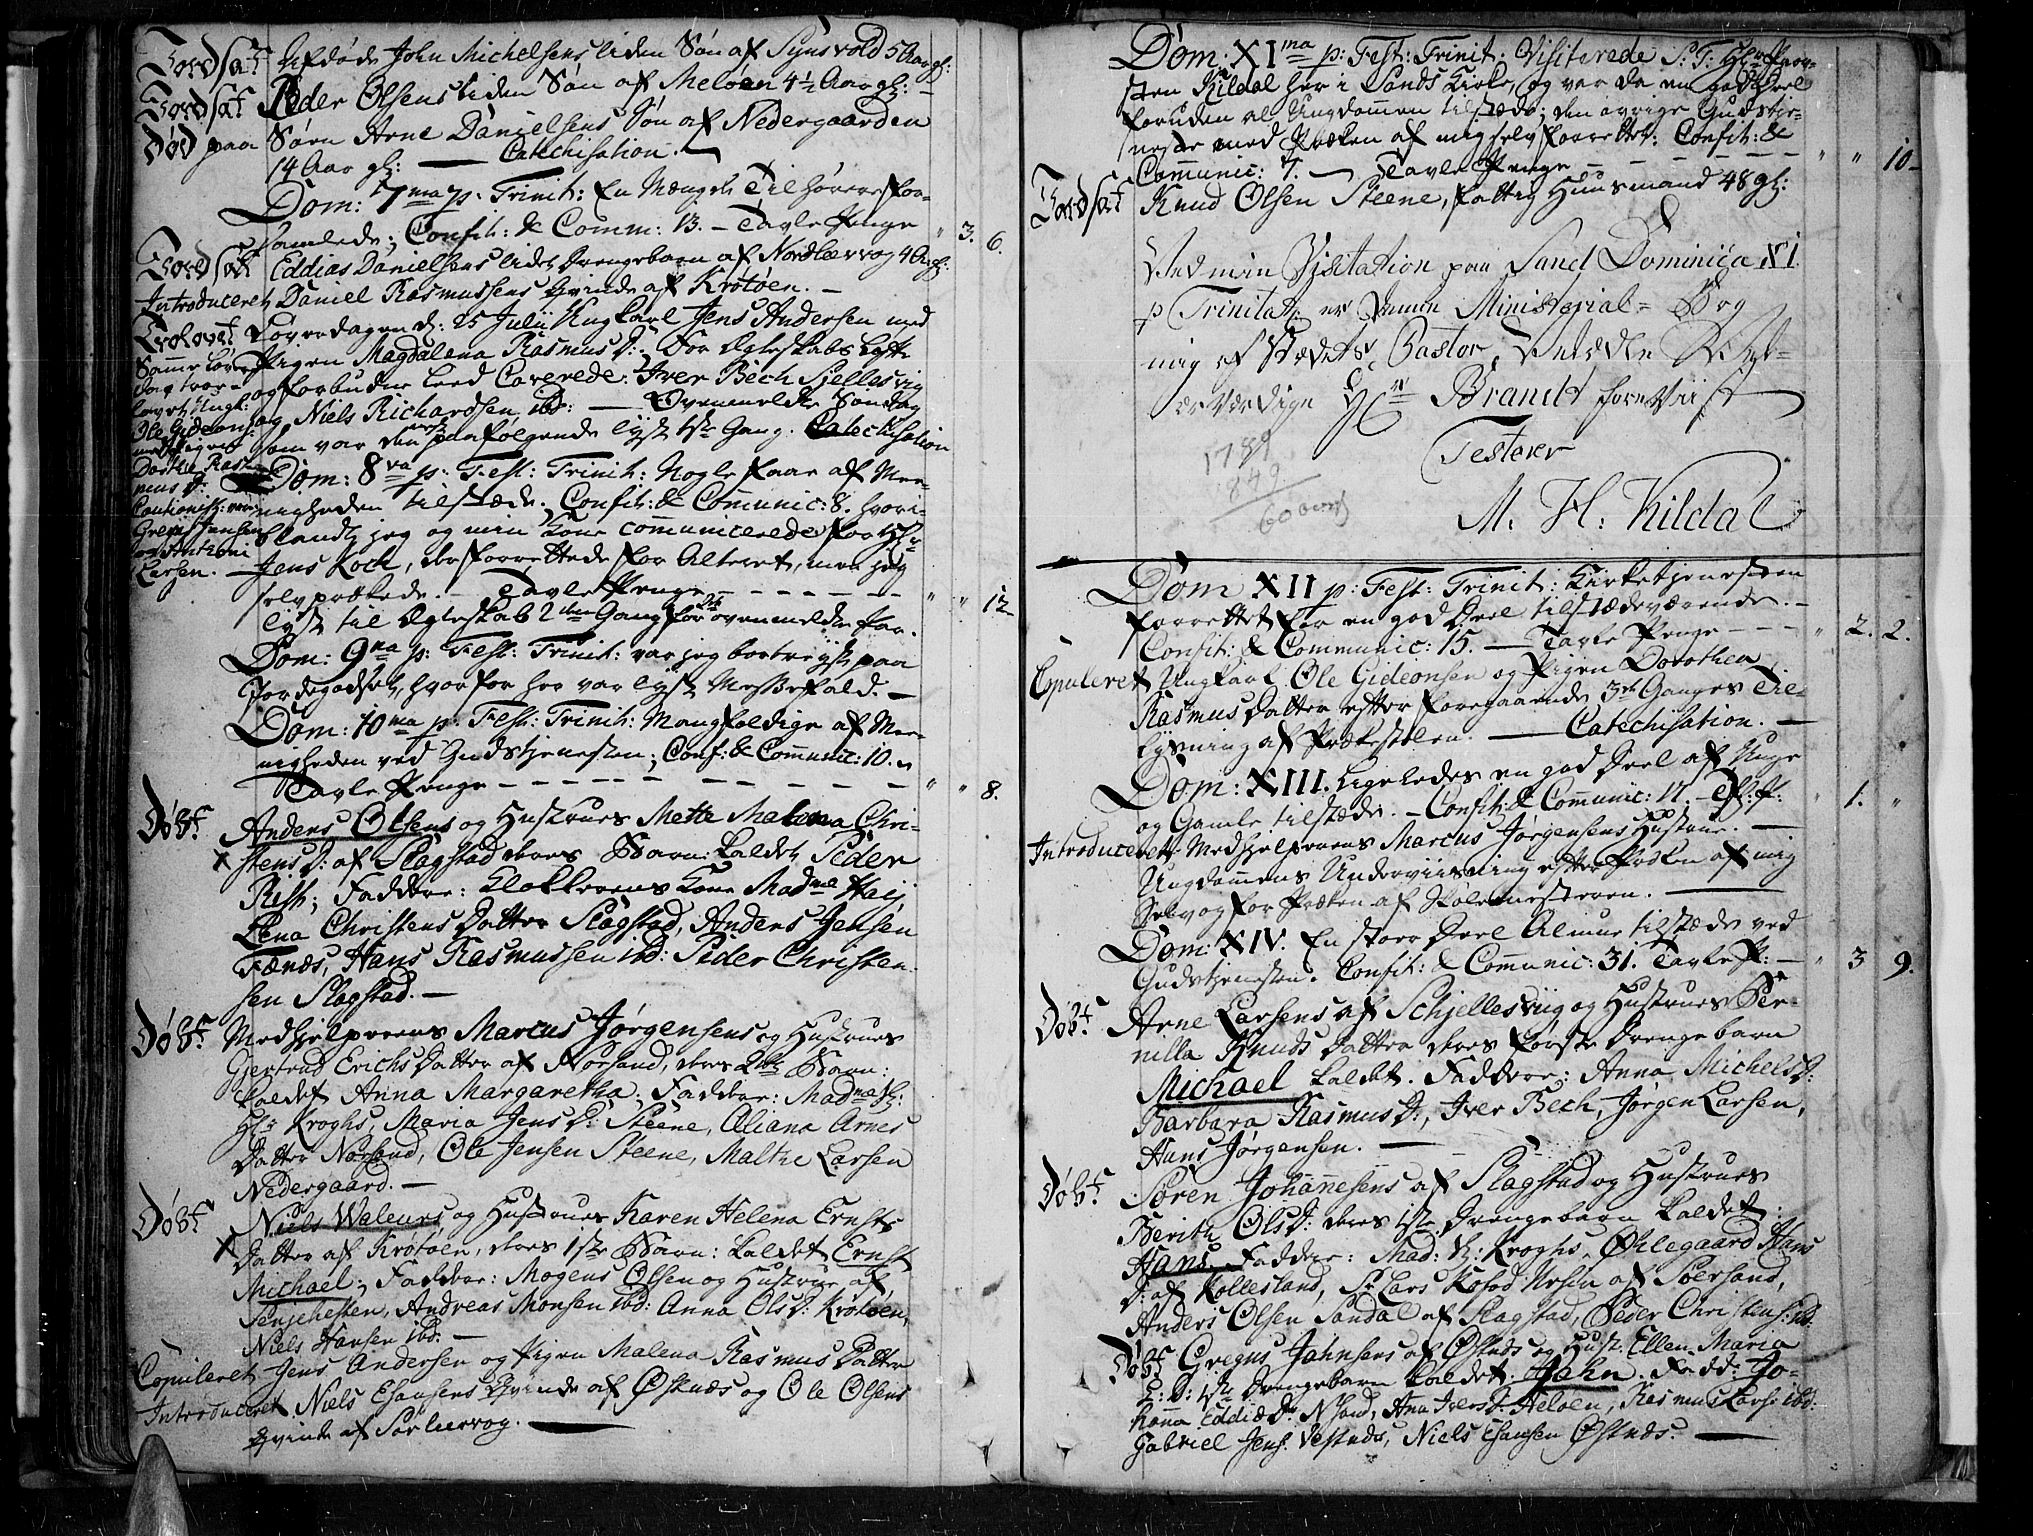 Jordsat Afdøde John Michelsens liden Søn af Synsvold 5 Aar gl:
Jordsat Peder Olsens liden Søn af Meløen 4½ Aar gl: —
Død paa Søen Arne Danielsens Søn af Nedergaarden
14 Aar gl: — Catechisation. —
Dom: 7ma p: Trinit: En Mængde Tilhørere for-
samlede; Confit: & Comm: 13. — Tavle Penge " 3. 6.
Jordsat Eddias Danielsens lidet Drengebarn af Nordlærvog 4 Aar gl:
Introduceret Daniel Rasmussens Qvinde af Krøtøen. —
Trolovet Løverdagen d: 25 Julii Ungkarl Jens Andersen med
Pigen Magdalena Rasmus D:, For Ægteskabs Løfte
og forbudne Leed Caverede: Iver Bech Sjellesvig
og Niels Richardsen ibd: — Ovenmeldte Søndag
som var den næst paafølgende lyst 1ste Gang. Catechisation
Samme Løver-
dag trov-
lovet Ungk:
Ole Gideons:
med Pigen
Dorthe Ras-
mus D:
Cautionister: vare
Jensen
og Anthoni
Larsen.
Dom: 8va p: Fest: Trinit: Nogle faae af Me-
nigheden tilstæde. Confit: & Communic: 8. hvori-
blandt jeg og min Kone communicerede for Hr
Jens Koch, der forrettede for Alteret, men jeg
selv prækede. — Tavle Penge — — — " " 12
lyst til Ægteskab 2den Gang for ovenmeldte Par.
Dom: 9na p: Fest: Trinit: var jeg bortreyst paa
Jordegodset, hvorfor her var lyst Messefald. —
Dom: 10ma p: Fest: Trinit: Mangfoldige af Me-
nigheden ved Gudstjenesten; Conf: & Communic: 10.
Tavle Penge — — — — — " " 8.
Døbt Anders Olsens og Hustrues Mette Malena Chri-
stens D: af Slagstad deres Barn: kaldet Peder
Rest; Faddere: Klokkerens Kone Madme Haij
Lena Christens Datter Slagstad, Anders Jensen
Fænæs, Hans Rasmussen ibd: Peder Christen-
sen Slagstad. —
Døbt Medhjelperens Marcus Jørgensens og Hustrues
Gjertrud Erichs Datter af Norsand, deres 2det Barn:
kaldet Anna Margaretha. Faddere: Madme
Hr Kroghs, Maria Jens D: Steene, Oliana Arnes
Datter Norsand, Ole Jensen Steene, Malthe Larsen
Nedergaard. —
Døbt Niels Waleurs og Hustrues Karen Helena Ernsts
Datter af Krøtøen, deres 1ste Barn: kaldet Ernst
Michael; Faddere: Mogens Olsen og Hustrue af
Senjehesten, Andreas Monsen ibd: Anna Ols D: Krøtøen,
Niels Hansen ibd: —
Copuleret Jens Andersen og Pigen Malena Rasmus Datter
Introduceret Niels Esausens Qvinde af Østnæs og Ole Olsens
Qvinde af Sørlærvog. —
Dom: XIma p: Fest: Trinit: Visiterede S: T: Hr Prov-
sten Kildal her i Sands Kirke, og var da en god Deel
foruden al Ungdommen tilstæde; den øvrige Gudstje-
neste med Præken af mig selv forrettet. Confit: &
Communic: 7. — Tavle Penge — — — " " 10
Jordsat Knud Olsen Steene, fattig Huusmand 48 gl:
Ved min Visitation paa Sand Dominica XI
p Trinitat: er denne Ministerial-Bog
mig af Stædets Pastor, Velædle Velær-
værdige Hr Brandt foreviist
Testerer
M. H. Kildal
1789
849
60
Dom XII p: Fest: Trinit: Kirketjenesten
forrettet for en god Deel tilstædeværende. —
Confit: & Communic: 15. — Tavle Penge — — " 2. 2.
Copuleret Ungkarl Ole Gideonsen og Pigen Dorothea
Rasmus Datter efter foregaaende 3de Ganges Til-
lysning af Prækestolen. — Catechisation. —
Dom: XIII. Ligeledes en god Deel af Unge
og Gamle tilstæde. — Confit: & Communic: 17. — T: P: " 1. "
Introduceret Medhjelperens Marcus Jørgensens Hustrue. —
Ungdommens Underviisning efter Præken af mig
Selv og for Præken af Skolemesteren. —
Dom: XIV. En stoer Deel Almue tilstæde ved
Gudstjenesten. Confit: & Communic: 31. Tavle P: — " 3 9.
Døbt Arne Larsens af Schjellesviig og Hustrues Per-
nilla Knuds Datter deres første Drengebarn
Michael kaldet. Faddere: Anna Michels D:
Barbara Rasmus D:, Iver Bech, Jørgen Larsen,
Hans Jørgensen. —
Døbt Søren Johannesens af Slagstad og Hustrues
Berith Ols D: deres 1ste Drengebarn kaldet:
Hans. Faddere: Mad: Kroghs, Øhlegaard Hans
D: af Kollesland, Sr Lars Kofod af Sørsand,
Anders Olsen Sandal af Slagstad, Peder Christens: ibd:
Døbt Gregus Jahnsens af Østnæs og Hust: Ellen Maria
L: D: 1ste Drengebarn kaldet. Jahn. Fadd: Jo-
hanna Eddiæ D: N:sand, Ana Ivers D: Meløen, Rasmus Lars: ibd:
Gabriel Jens: Vestnæs, Niels Esausen Østnæs. —